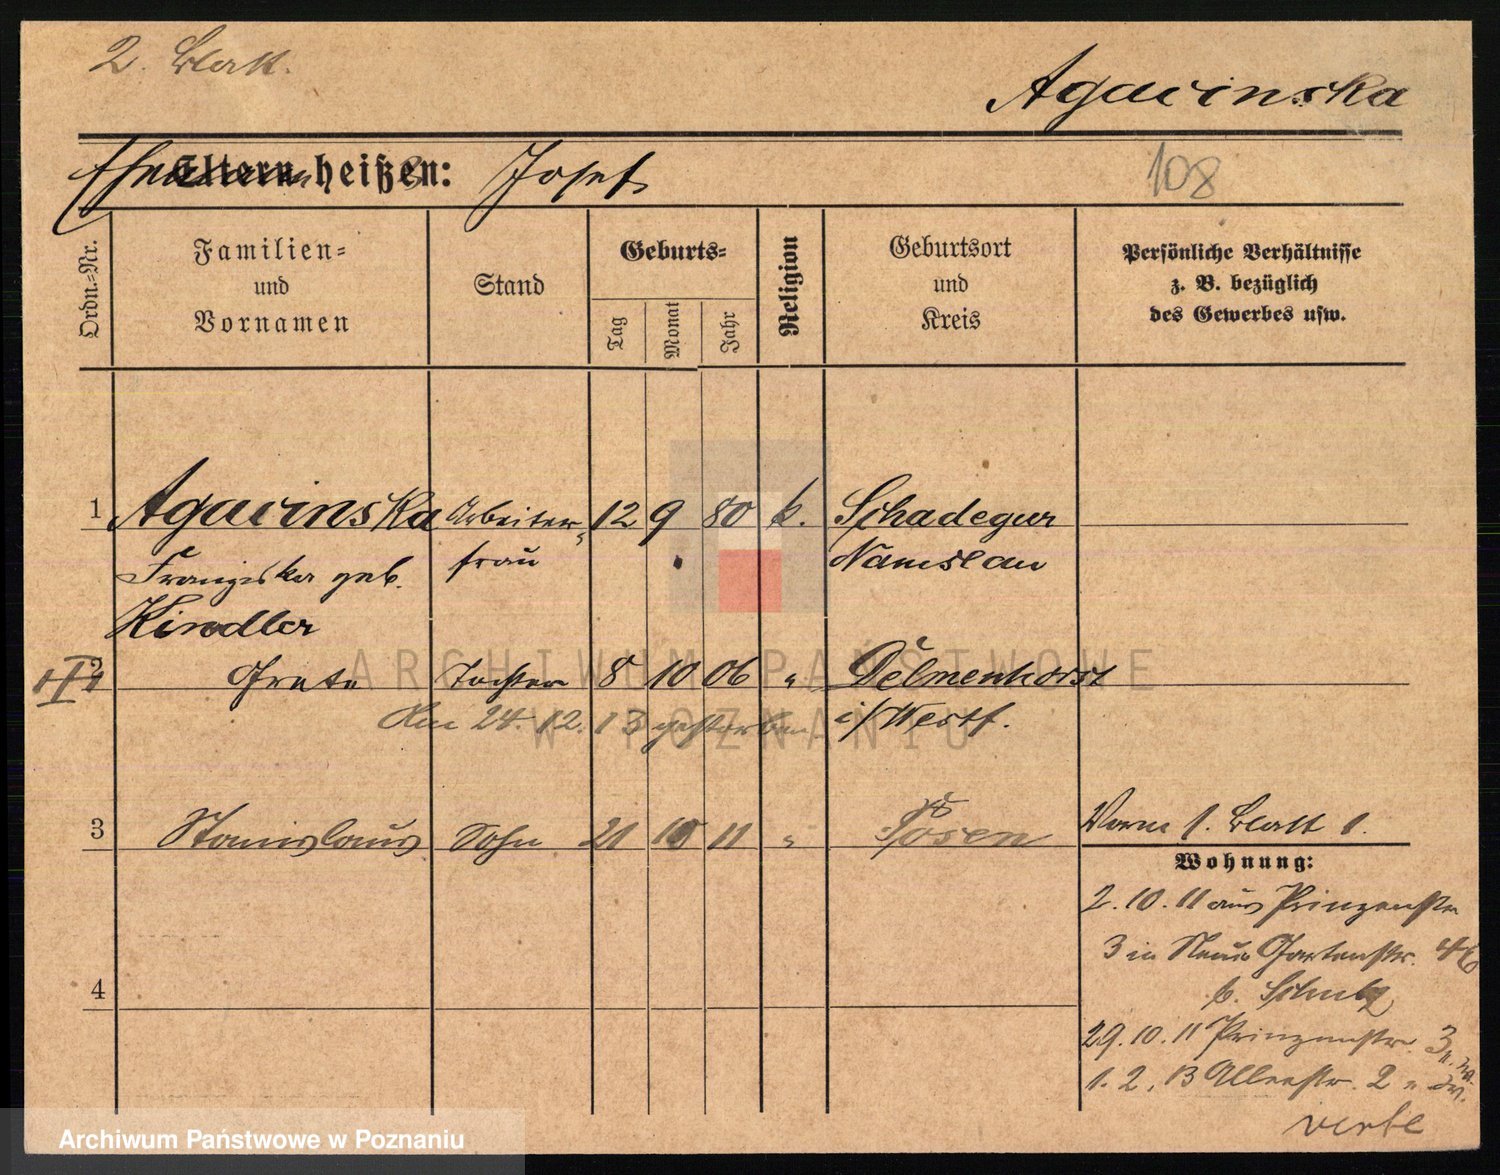 2. Blatt.
Agacinska
Ehemann heißen: Josef
108
Ordn.-Nr.
Familien-
und
Vornamen
Stand
Geburts-
Tag
Monat
Jahr
Religion
Geburtsort
und
Kreis
Persönliche Verhältnisse
z. B. bezüglich
des Gewerbes usw.
1 Agacinska Arbeiter- 12 9 80 k. Schadegur
Franziska geb. frau Namslau
Kindler
2 Grete Tochter 8 10 06 " Delmenhorst
Am 24. 12. 13 gestorben i/Westf.
3 Stanislaus Sohn 21 10 11 " Posen
Vorm 1. Blatt 1.
Wohnung:
2. 10. 11 aus Prinzenstr
3 in Neue Gartenstr. 46
b. Schulz
4
29. 10. 11 Prinzenstr. 3
1. 2. 13 Allerstr. 2
ARCHIWUM PAŃSTWOWE
W POZNANIU
Archiwum Państwowe w Poznaniu